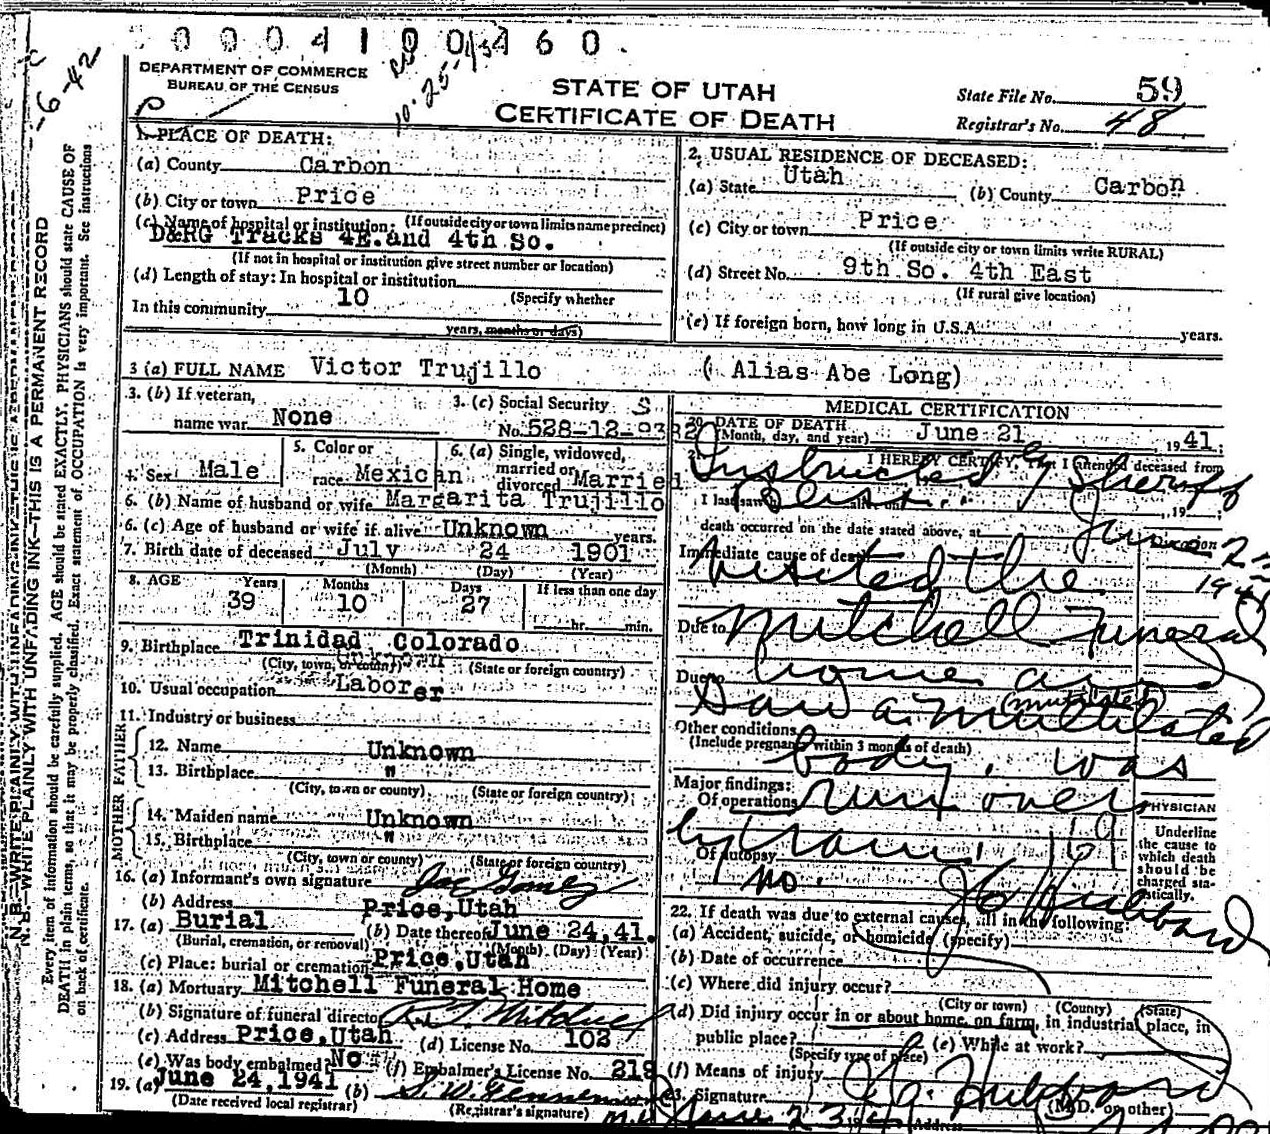 0004100460.
DEPARTMENT OF COMMERCE
BUREAU OF THE CENSUS
10-25-43
-6-42
STATE OF UTAH
CERTIFICATE OF DEATH
State File No. 59
Registrar's No. 48
1. PLACE OF DEATH:
(a) County Carbon
(b) City or town Price
(c) Name of hospital or institution: (If outside city or town limits name precinct)
D&RG Tracks 4E. and 4th So.
(If not in hospital or institution give street number or location)
(d) Length of stay: In hospital or institution
(Specify whether
In this community 10
years, months or days)
2. USUAL RESIDENCE OF DECEASED:
(a) State Utah (b) County Carbon
(c) City or town Price
(If outside city or town limits write RURAL)
(d) Street No. 9th So. 4th East
(If rural give location)
(e) If foreign born, how long in U.S.A. years.
3 (a) FULL NAME Victor Trujillo ( Alias Abe Long)
3. (b) If veteran,
name war None
3. (c) Social Security
No. 528-12-9382
4. Sex Male
5. Color or
race Mexican
6. (a) Single, widowed,
married or
divorced Married
6. (b) Name of husband or wife Margarita Trujillo
6. (c) Age of husband or wife if alive Unknown years.
7. Birth date of deceased July 24 1901
(Month) (Day) (Year)
8. AGE Years Months Days If less than one day
39 10 27 hr. min.
9. Birthplace Trinidad Colorado
(City, town, or county) (State or foreign country)
10. Usual occupation Laborer
11. Industry or business
FATHER
12. Name Unknown
13. Birthplace "
(City, town or county) (State or foreign country)
MOTHER
14. Maiden name Unknown
15. Birthplace "
(City, town or county) (State or foreign country)
16. (a) Informant's own signature Joe Gomez
(b) Address Price, Utah
17. (a) Burial (b) Date thereof June 24, 41.
(Burial, cremation, or removal) (Month) (Day) (Year)
(c) Place: burial or cremation Price, Utah
18. (a) Mortuary Mitchell Funeral Home
(b) Signature of funeral director
(c) Address Price, Utah (d) License No. 102
(e) Was body embalmed No (f) Embalmer's License No. 219
19. (a) June 24, 1941 (b)
(Date received local registrar) (Registrar's signature)
MEDICAL CERTIFICATION
20. DATE OF DEATH
(Month, day, and year) June 21, 1941
I HEREBY CERTIFY, That I attended deceased from
Instructed by Sheriff
I last saw alive on , 19
death occurred on the date stated above, at
June 22 1941
Duration
Immediate cause of death
Visited the
Due to
Mitchell Funeral
Due to
home and
saw a multilated
(mutilated)
Other conditions
(Include pregnancy within 3 months of death)
body. was
Major findings:
Of operations
run over
by train.
Of autopsy
no.
J C Hubbard
PHYSICIAN
Underline
the cause to
which death
should be
charged sta-
tistically.
22. If death was due to external causes, fill in the following:
(a) Accident, suicide, or homicide (specify)
(b) Date of occurrence
(c) Where did injury occur?
(City or town) (County) (State)
(d) Did injury occur in or about home, on farm, in industrial place, in
public place? (e) While at work?
(Specify type of place)
(f) Means of injury
23. Signature
(M.D. or other)
June 23
Address
N. B.—WRITE PLAINLY WITH UNFADING INK—THIS IS A PERMANENT RECORD
Every item of information should be carefully supplied. AGE should be stated EXACTLY. PHYSICIANS should state CAUSE OF
DEATH in plain terms, so that it may be properly classified. Exact statement of OCCUPATION is very important. See instructions
on back of certificate.